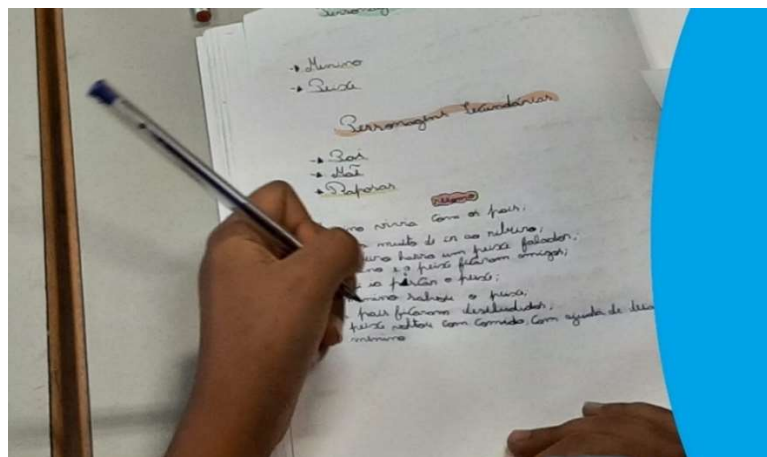 → Menino
→ Peixe
Personagens secundárias
→ Pai
→ Mãe
→ Raposas
resumo
vivia com os pais;
muito de ir ao ribeiro;
havia um peixe falador;
e o peixe ficaram amigos;
ia pescar o peixe;
menino salvou o peixe;
pais ficaram desiludidos;
peixe voltou com comida, com ajuda de
menino